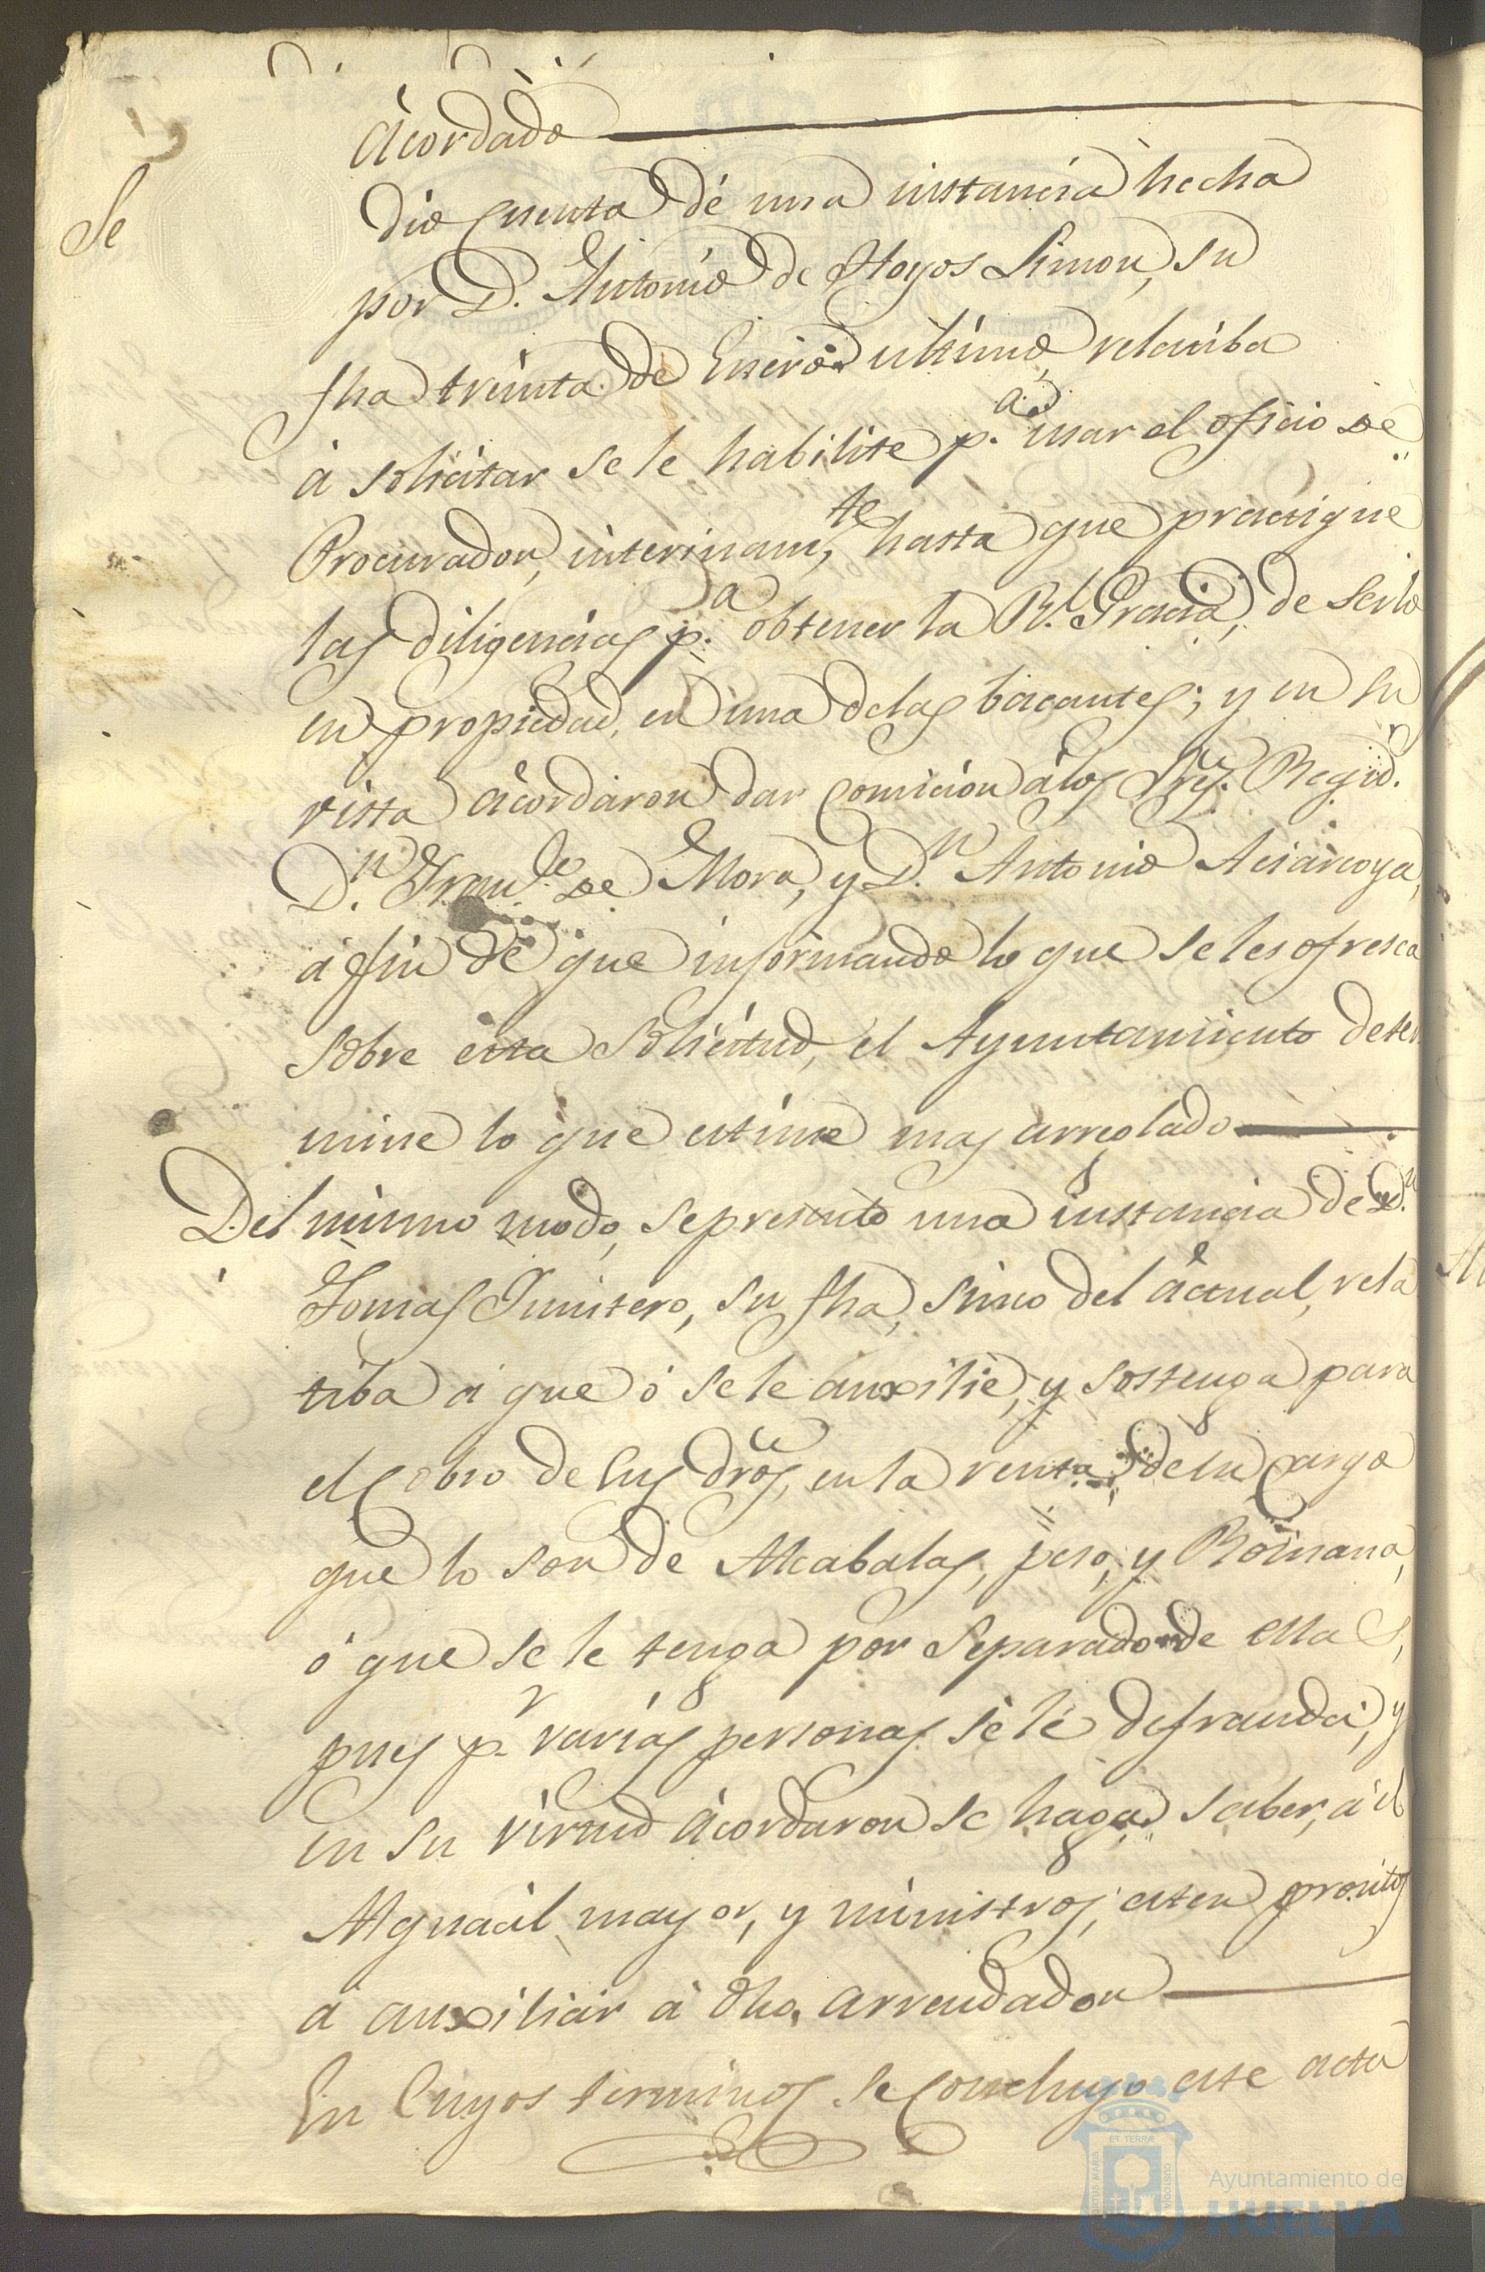 acordado
Se dio Cuenta de una instancia hecha
por D. Antonio de Hoyos Limon, su
fha treinta de Enero ultimo, relatiba
á solicitar se le habilite p.a usar el oficio de
Procurador, interinam.te hasta que practique
las diligencias p.a obtener la R.l Gracia, de serlo
en propiedad, en una delas bacantes; y en su
vista acordaron dar Comicion álos Sres. Regid.r
D.n Fran.co de Mora, y D.n Antonio
á fin de que informando lo que seles ofresca
sobre esta solicitud, el Ayuntamiento deter
mine lo que estime mas arreglado
Del mismo modo, sepresentó una instancia de D.n
Tomas su fha, sinco del actual, rela
tiba á que ó sele auxilie, y sostenga para
el Cobro de sus dros, en la renta, de su Cargo
que lo son de Alcabalas, peso, y Romana,
ó que se le tenga por separado de ellas,
pues p.r varias personas se le defrauda, y
en su virtud acordaron se haga saber, á el
Alguacil mayor, y ministros, esten prontos
á auxiliar á dho. arrendador
En Cuyos terminos se Concluyo este acto
ET TERRÆ
PORTUS MARIS
CUSTODIA
Ayuntamiento de
HUELVA